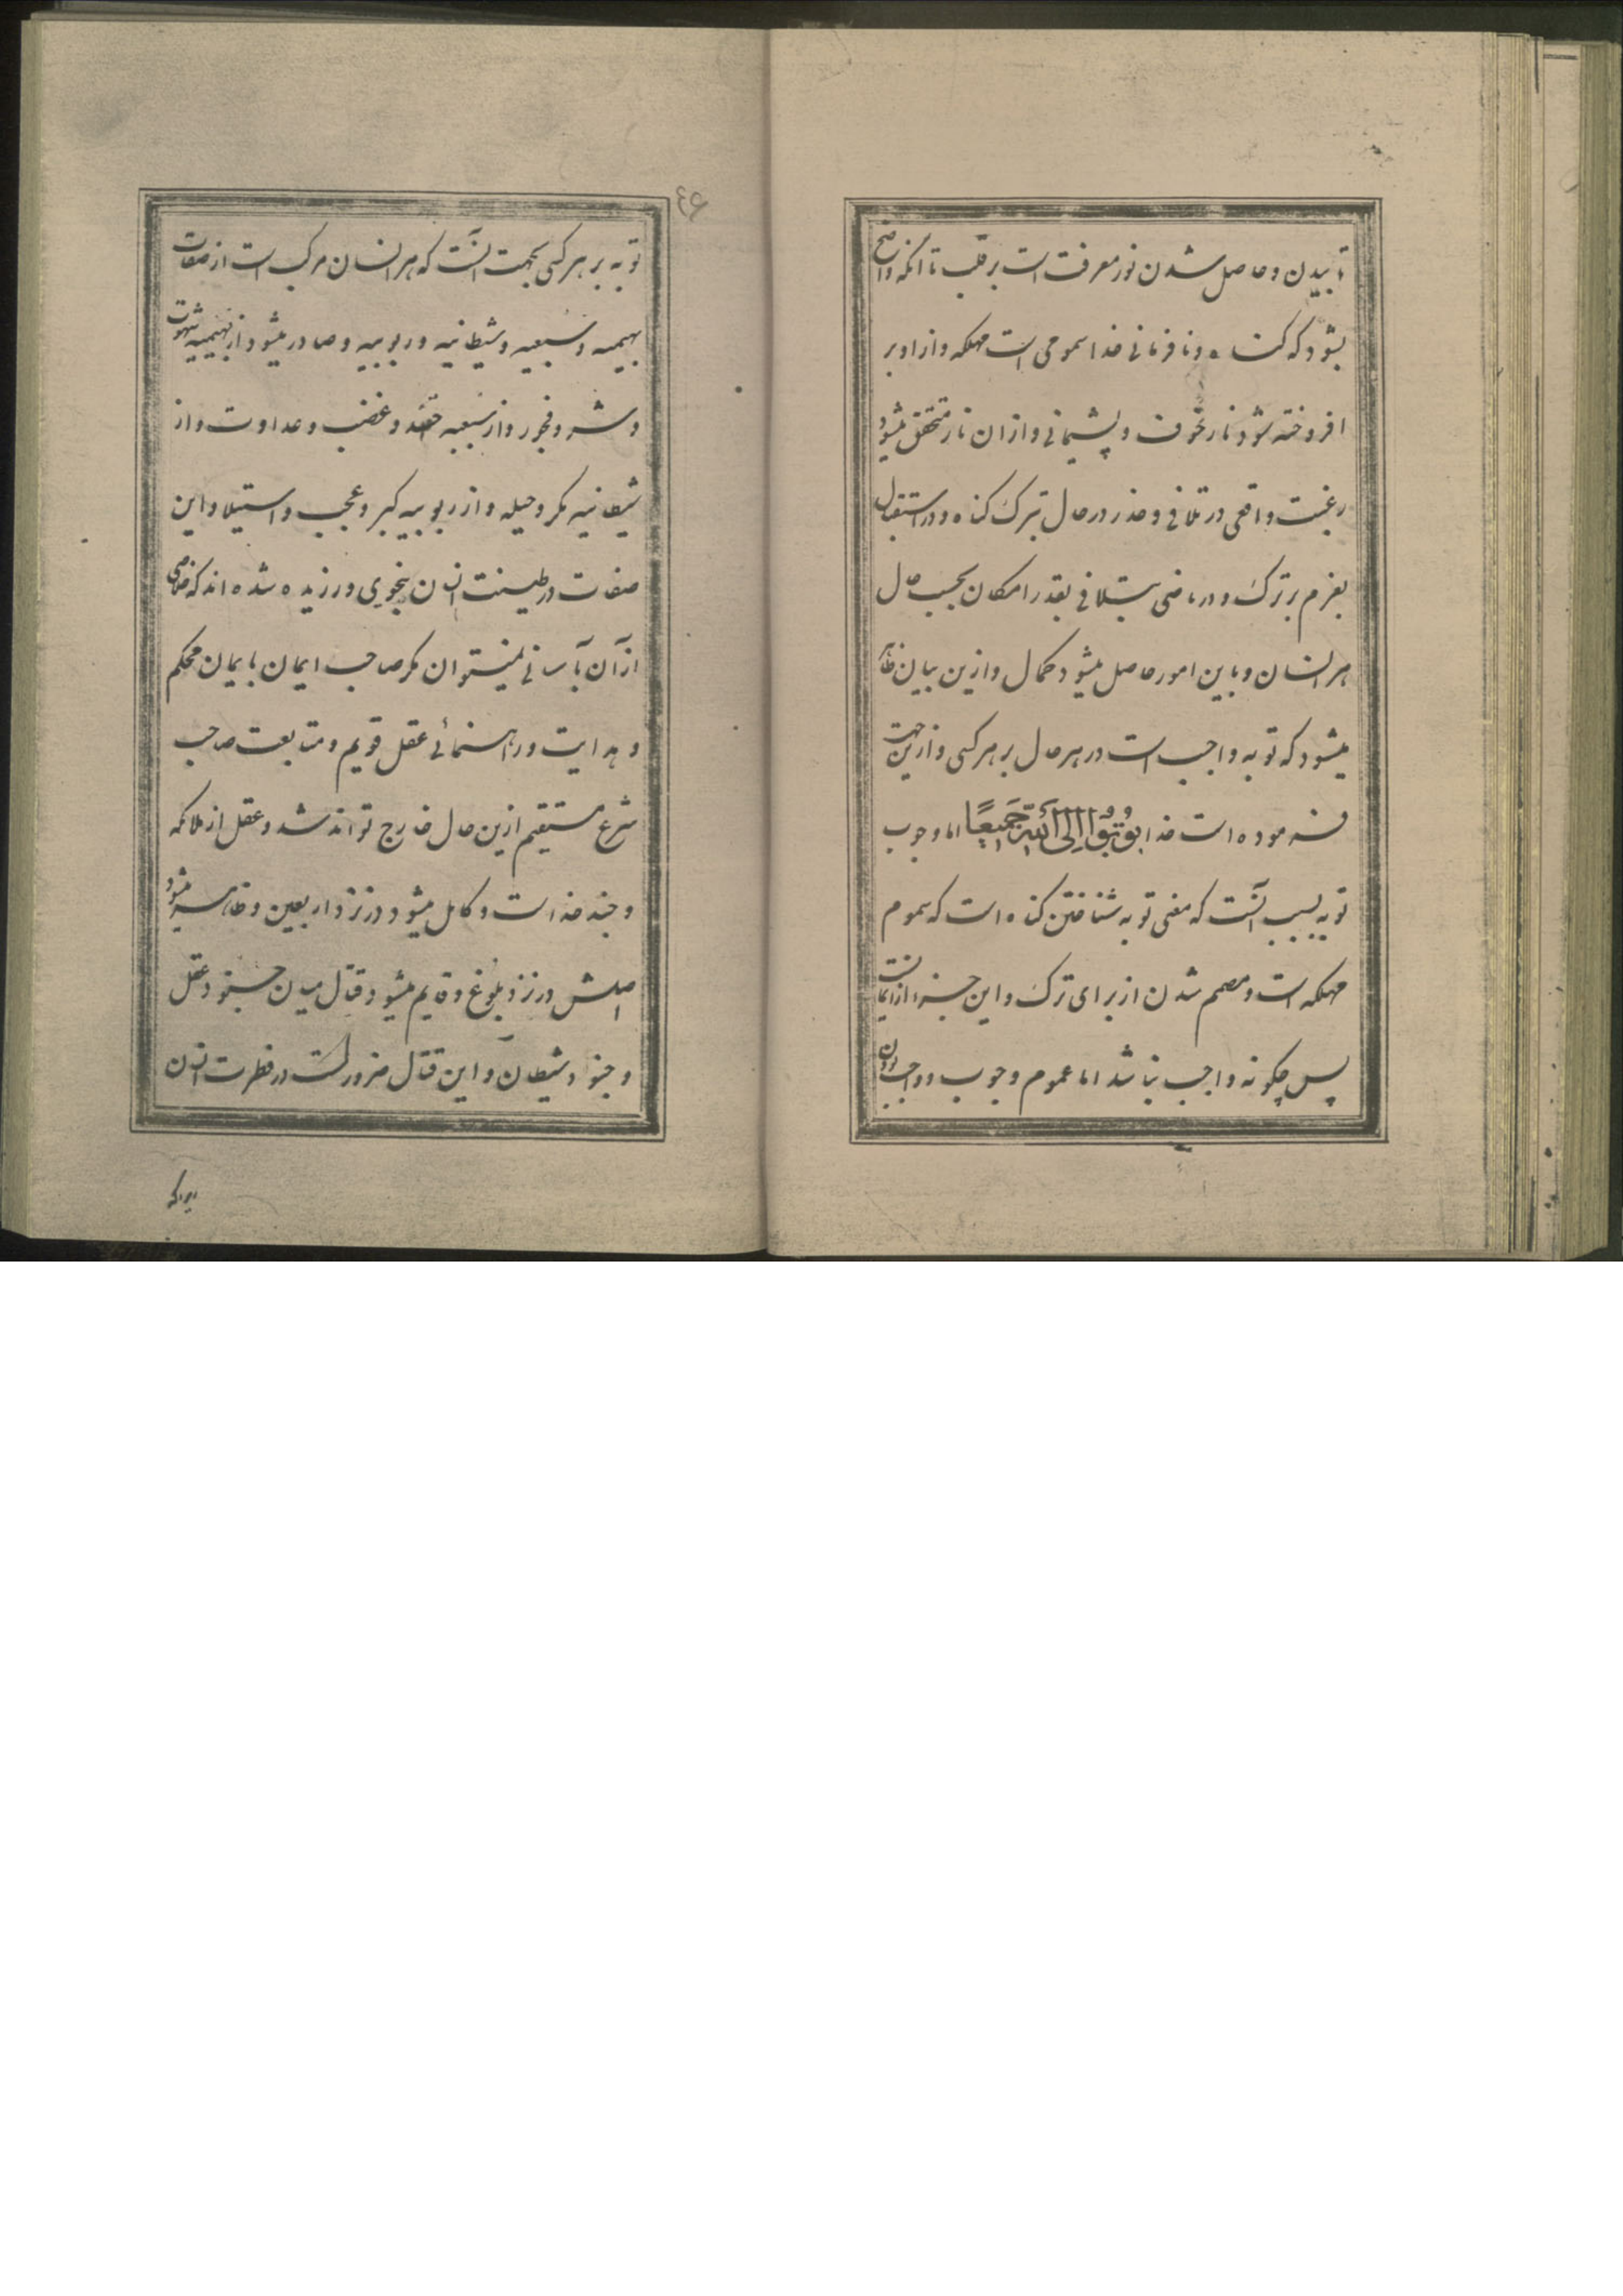 تابیدن و حاصل شدن نور معرفت است بر قلب تا آنکه واضح
بشود که کناه و نافرمانی خدا سمومی است مهلکه و از او بر
افروخته شود نار خوف و پشیمانی و ازان نار متحقق میشود
رغبت واقعی در تلافی و حذر در حال بترک کناه و در استقبال
بعزم بر ترک و در ماضی بتلافی بقدر امکان بحسب حال
هر انسان و باین امور حاصل میشود کمال و ازین بیان ظاهر
میشود که توبه واجب است در هر حال بر هر کسی و ازین جهت
فرموده است خدا تُوبُوا اِلَی اللّهِ جَمیعًا اما وجوب
توبه بسبب آنست که معنی توبه شناختن کناه است که سموم
مهلکه است و مصمم شدن از برای ترک و این جزء از ایمانست
پس چکونه واجب نباشد اما عموم وجوب و واجب بودن
توبه بر هر کسی بجهت آنست که هر انسان مرکب است از صفات
بهیمیه و سبعیه و شیطانیه و ربوبیه و صادر میشود از بهیمیه شهوت
و شره و فجور و از سبعیه حقد و غضب و عداوت و از
شیطانیه مکر و حیله و از ربوبیه کبر و عجب و استیلا و این
صفات در طینت انسان بنحوی ورزیده شده اند که خلاصی
از آن بآسانی نمیتوان مکر صاحب ایمان بایمان محکم
و هدایت و راهنمائی عقل قویم و متابعت صاحب
شرع مستقیم ازین حال خارج تواند شد و عقل از ملائکه
و جند خداست و کامل میشود در نزد اربعین و ظاهر میشود
اصلش در نزد بلوغ و قایم میشود قتال میان جنود عقل
و جنود شیطان و این قتال ضرور است در فطرت انسان